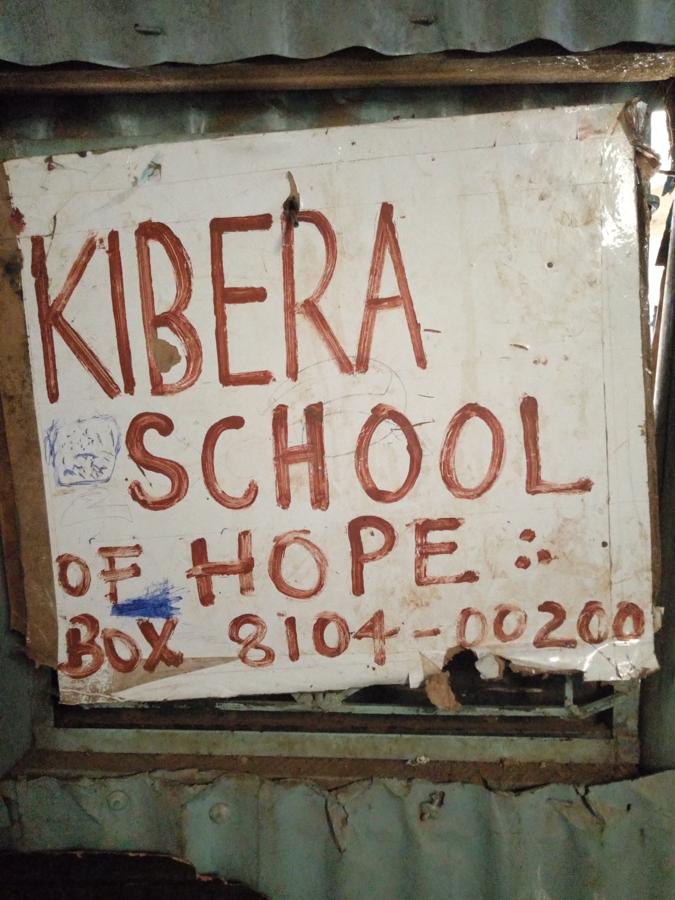 KIBERA
SCHOOL
OF HOPE :·
BOX 8104-00200